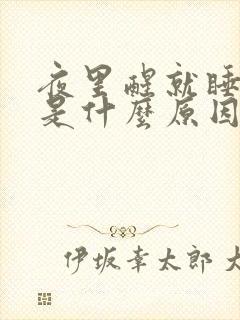 夜里醒就睡
是什麼原因
伊坂幸太郎 大